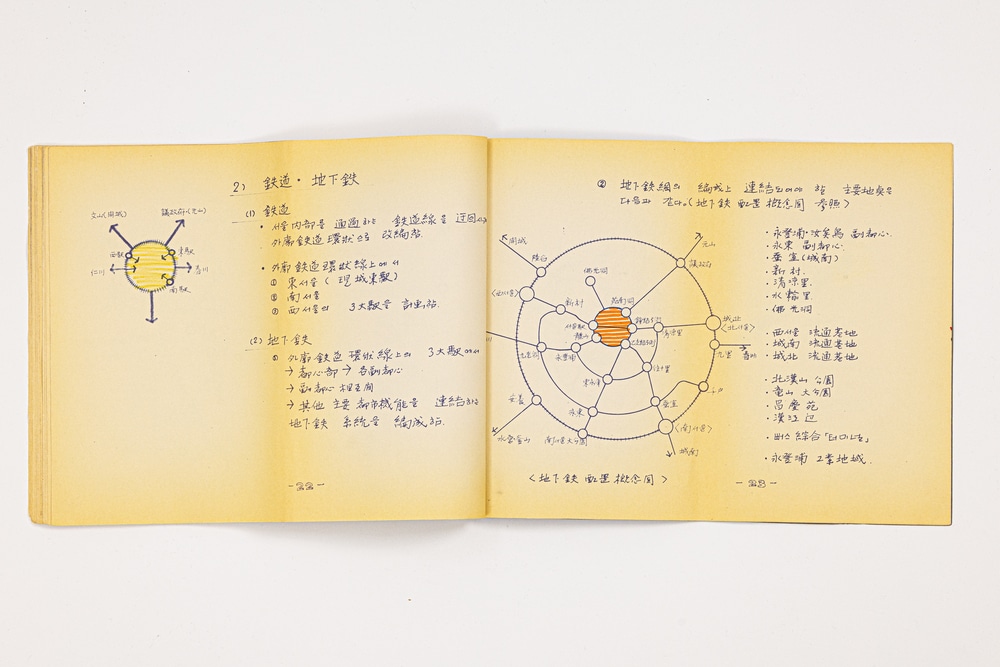 2) 鉄道·地下鉄
(1) 鉄道
• 서울内部를 通過하는 鉄道線을 迂回
外廓鉄道環状으로 改編함.
• 外廓鉄道環状線上에서
① 東서울 (現 城東駅)
② 南서울
③ 西서울의 3大駅을 計画함.
(2) 地下鉄
① 外廓鉄道環状線上의 3大駅에서
→ 都心部 → 各副都心
→ 副都心 相互間
→ 其他 主要 都市機能을 連結하는
地下鉄 系統을 編成함.
議政府(元山)
西駅
東駅
仁川
春川
南駅
-22-
② 地下鉄網의 編成上 連結되어야 할 主要地点은
다음과 같다。(地下鉄 配置 概念図 参照>
• 永登浦·汝矣島 副都心.
• 永東 副都心.
• 蚕室(城南)
• 新村.
• 清涼里.
• 水輪里.
• 佛光洞
• 西서울 流通基地
• 城南 流通基地
• 城北 流通基地
• 北漢山 公園
• 竜山 大公園
• 昌慶苑
• 漢江辺
• 버스 綜合「터미날」
• 永登浦 工業地域.
開城
陵谷
元山
議政府
佛光洞
新村
서울駅
清涼里
城北
<北서울>
九里
春川
往十里
永登浦
永東
蚕室
<南서울>
城南
安養
南서울大公園
<地下鉄 配置 概念図>
-23-